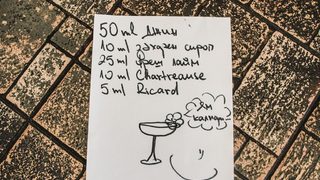 50 ml Джин
10 ml захарен сироп
25 ml фреш лайм
10 ml Chartreause
5 ml Ricard